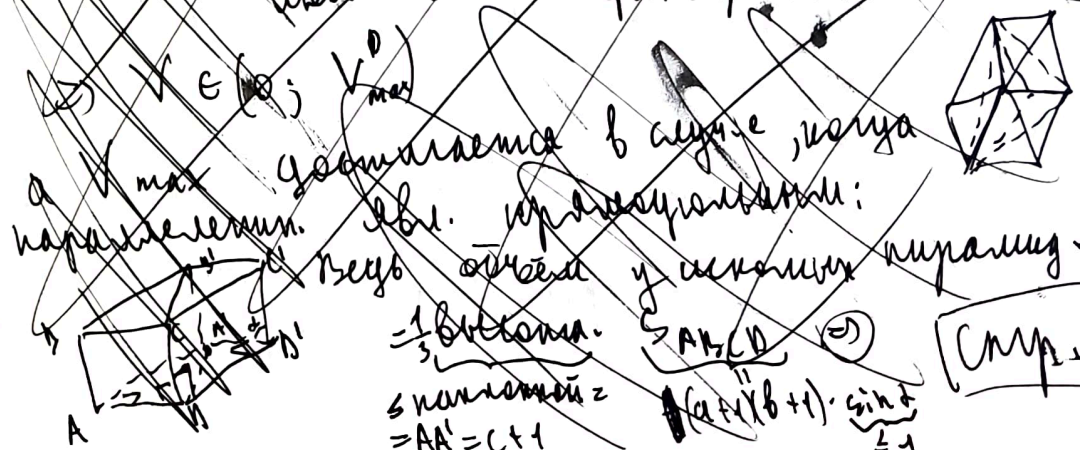 => V ∈ (0; V max)
а V max достигается в случае, когда
параллелепип. явл. прямоугольным:
Ведь объём у искомых пирамид
= 1/3 высота · S ABCD =>
≤ наклонной =
(a+1)(b+1) · sin α
= AA' = c+1
≤ 1
Стр.